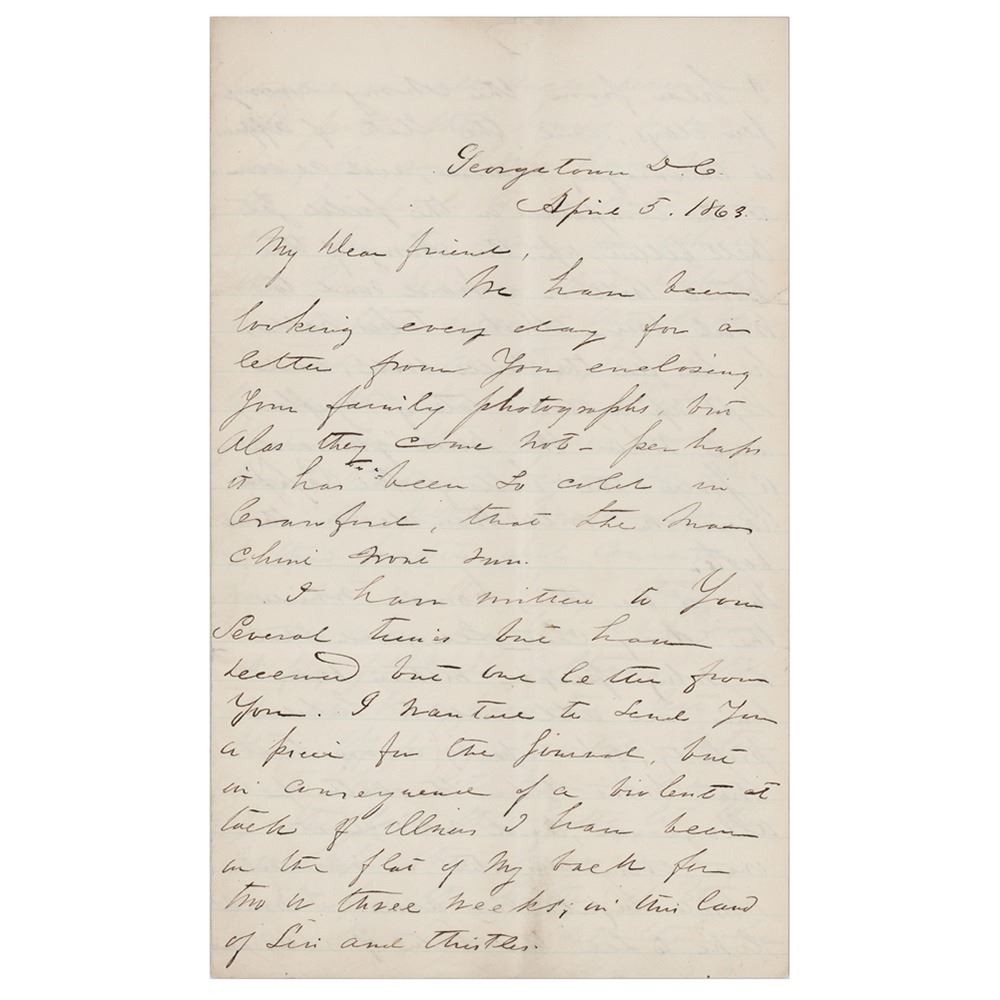 Georgetown D.C.
April 5. 1863.
My Dear friend,
We have been
looking every day for a
letter from You enclosing
Your family photographs, but
Alas they come not - perhaps
it has been so cold in
Crawford, that the Ma
chine wont run.
I have written to You
Several times but have
received but one letter from
You. I wanted to send You
a piece for the Journal, but
in consequence of a violent at
tack of illness I have been
on the flat of My back for
two or three weeks; in this land
of Sin and thistles.